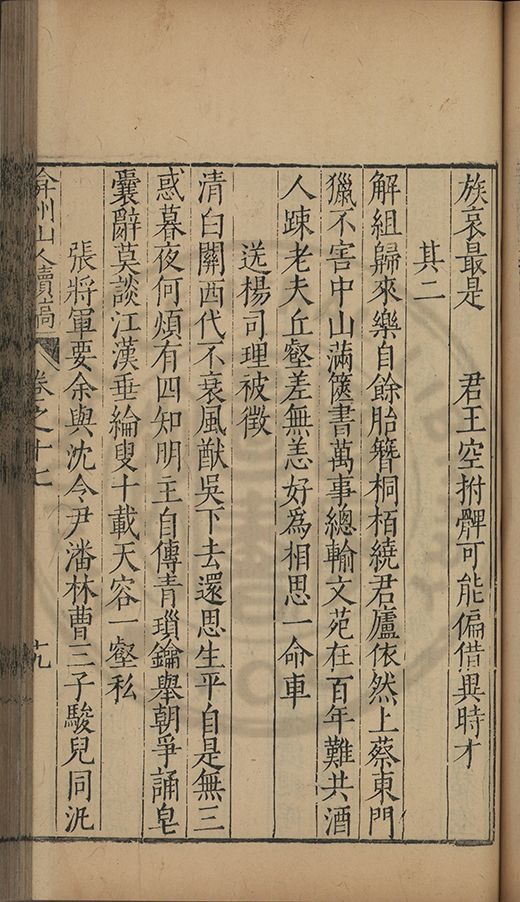 族哀最是　君王空拊髀可能偏借異時才
其二
解組歸來樂自餘胎簪桐栢繞君廬依然上蔡東門
獵不害中山滿篋書萬事總輸文苑在百年難共酒
人踈老夫丘壑差無恙好為相思一命車
送楊司理被徵
清白關西代不衰風猷吳下去還思生平自是無三
惑暮夜何煩有四知明主自傳青瑣鑰舉朝爭誦皂
囊辭莫談江漢垂綸叟十載天容一壑私
張將軍要余與沈令尹潘林曹三子駿兒同汎
弇州山人續稿
卷之十七
十九